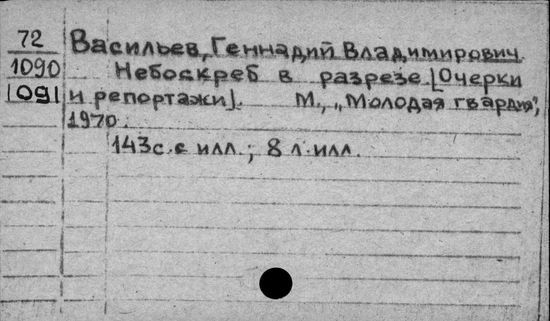 72
1090
1091
Васильев, Геннадий Владимирович
Небоскреб в разрезе. [Очерки
и репортажи]. М., „Молодая гвардия",
1970.
143с. с илл.; 8 л. илл.